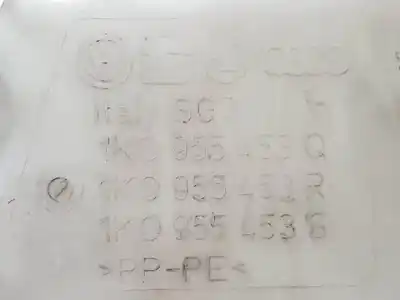 1K0 955 453 Q
1K0 955 453 R
1K0 955 453 S
>PP-PE<